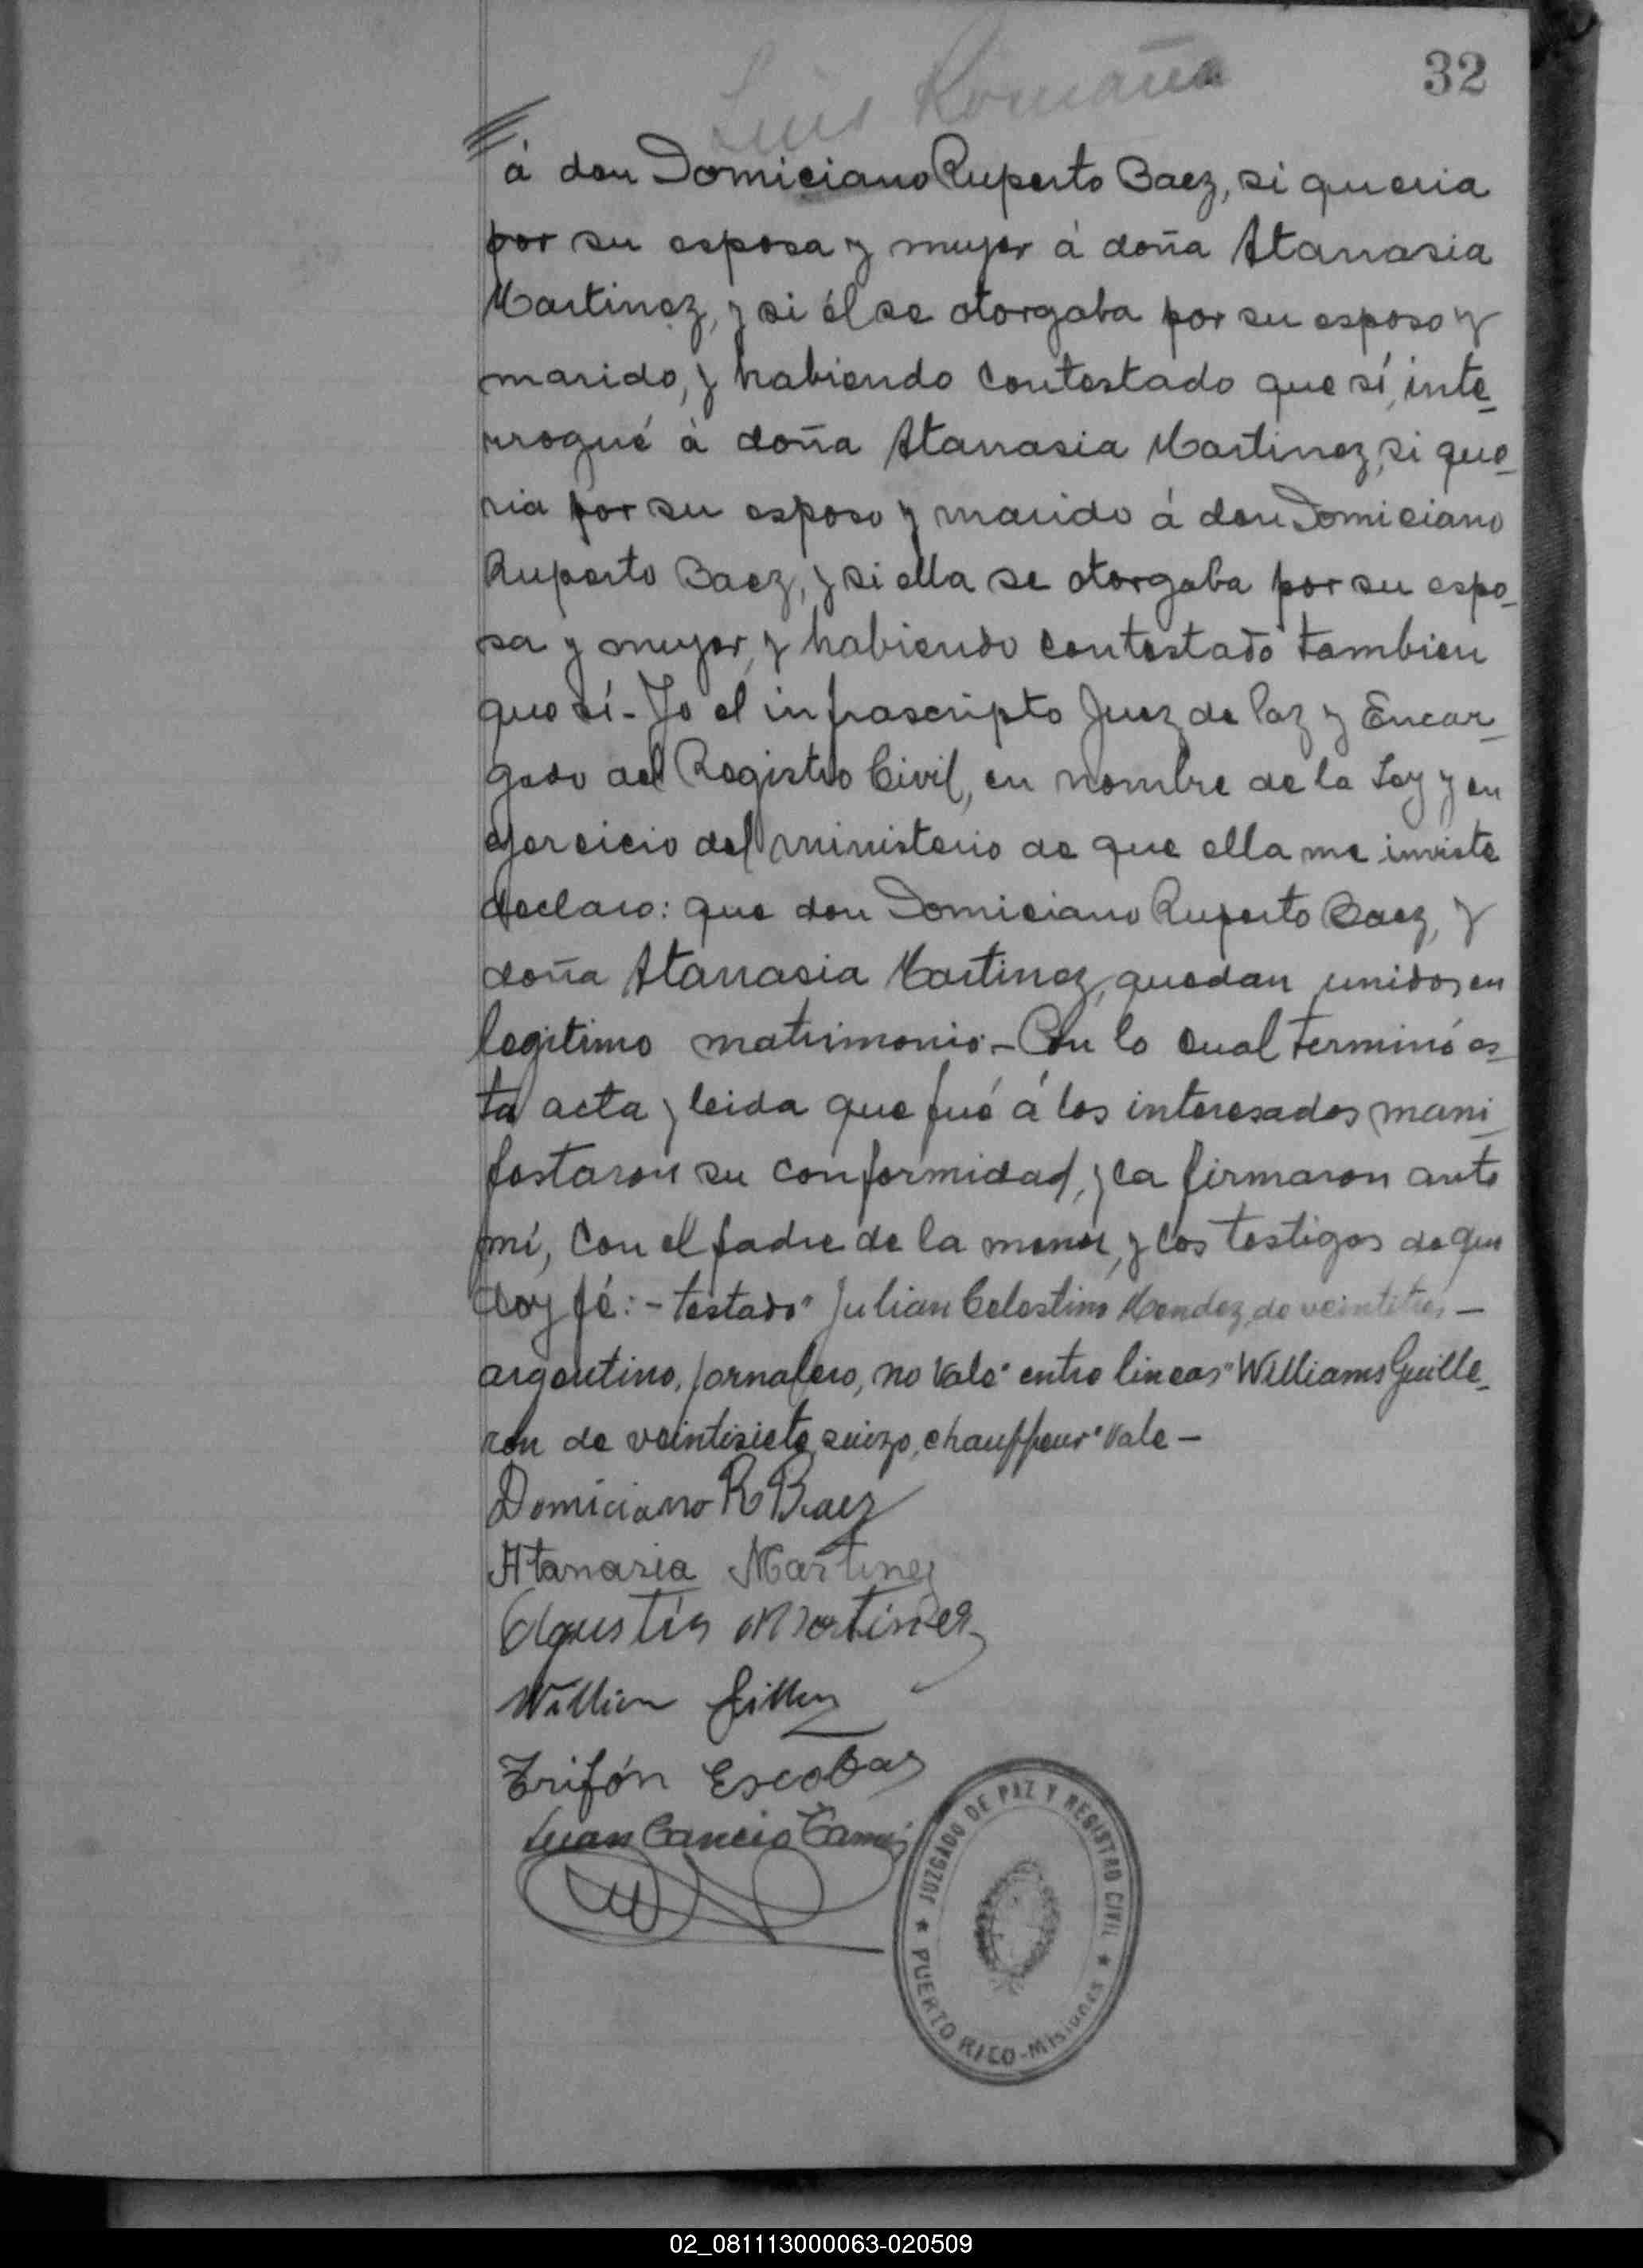 32
Luis Romaña
á don Domiciano Ruperto Baez, si queria
por su esposa y mujer á doña Atanasia
Martinez, y si él se otorgaba por su esposo y
marido, y habiendo contestado que sí, inte-
rrogué á doña Atanasia Martinez, si que-
ria por su esposo y marido á don Domiciano
Ruperto Baez, y si ella se otorgaba por su espo-
sa y mujer, y habiendo contestado tambien
que sí - Yo el infrascripto Juez de Paz y Encar-
gado del Registro Civil, en nombre de la Ley y en
ejercicio del ministerio de que ella me inviste
declaro: que don Domiciano Ruperto Baez, y
doña Atanasia Martinez, quedan unidos en
legitimo matrimonio - Con lo cual terminó es-
ta acta y leida que fué á los interesados mani-
festaron su conformidad, y la firmaron ante
mí, con el padre de la menor, y los testigos de que
doy fé: - testado "Julian Celestino Mendez, de veintitres, -
argentino, jornalero, no vale" entre lineas "Williams Guille-
ron de veintisiete, suizo, chauffeur" vale -
Domiciano R Baez
Atanasia Martinez
Agustín Martinez
William
Trifón Escobar
Juan Cancio
JUZGADO DE PAZ Y REGISTRO CIVIL
PUERTO RICO - Misiones
02_081113000063-020509